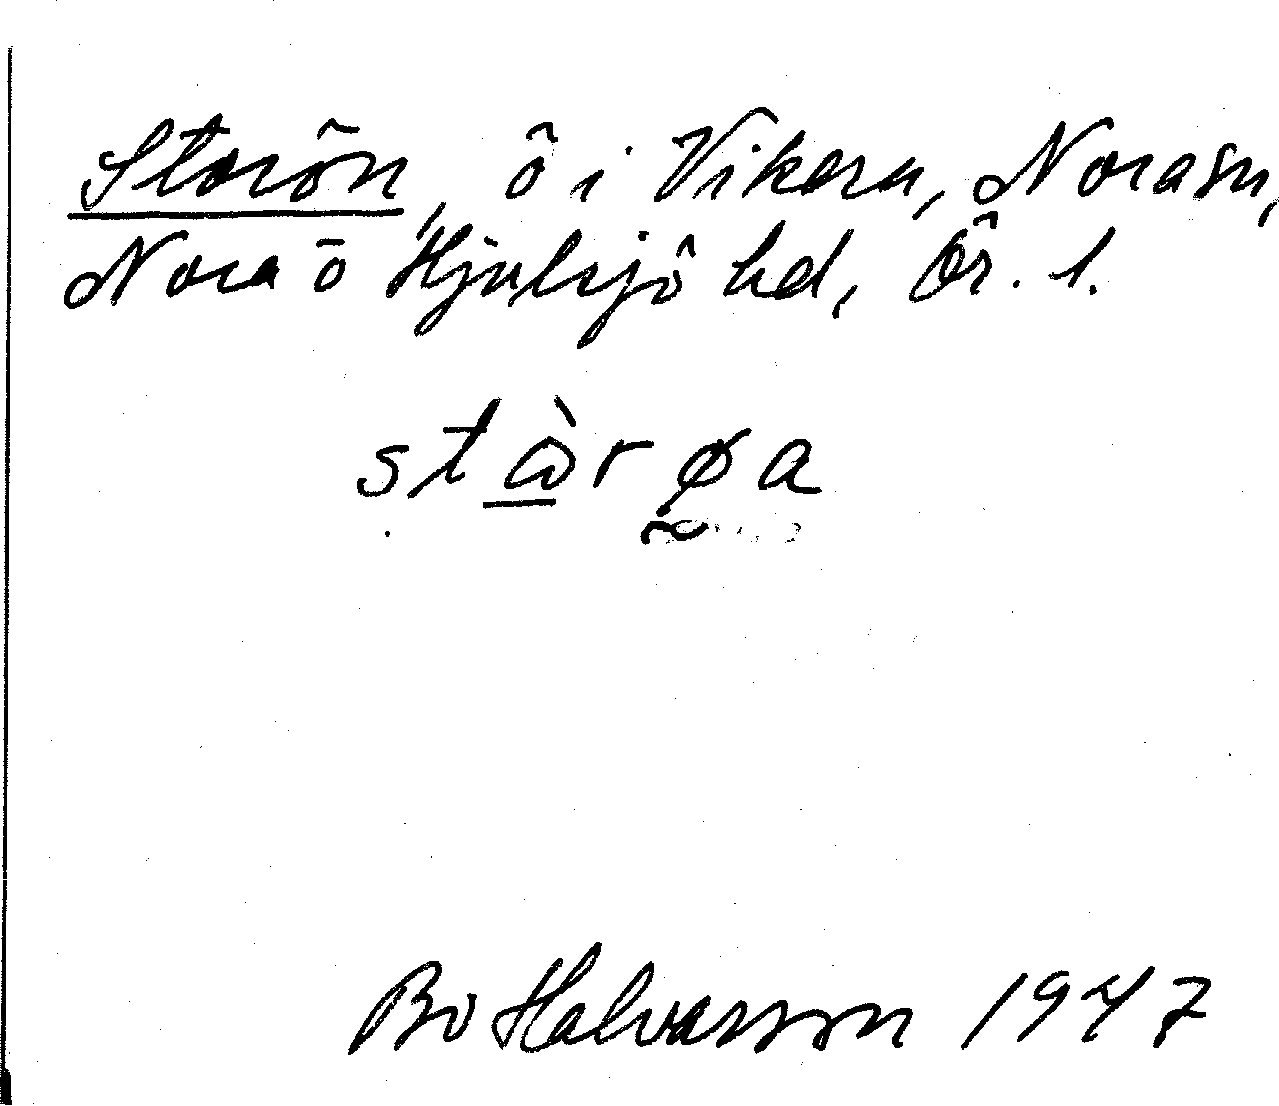 Storön, ö i Vikern, Norasn,
Nora o Hjulsjö hd, Ör. l.
stὼrøa
Bo Halvarsson 1947